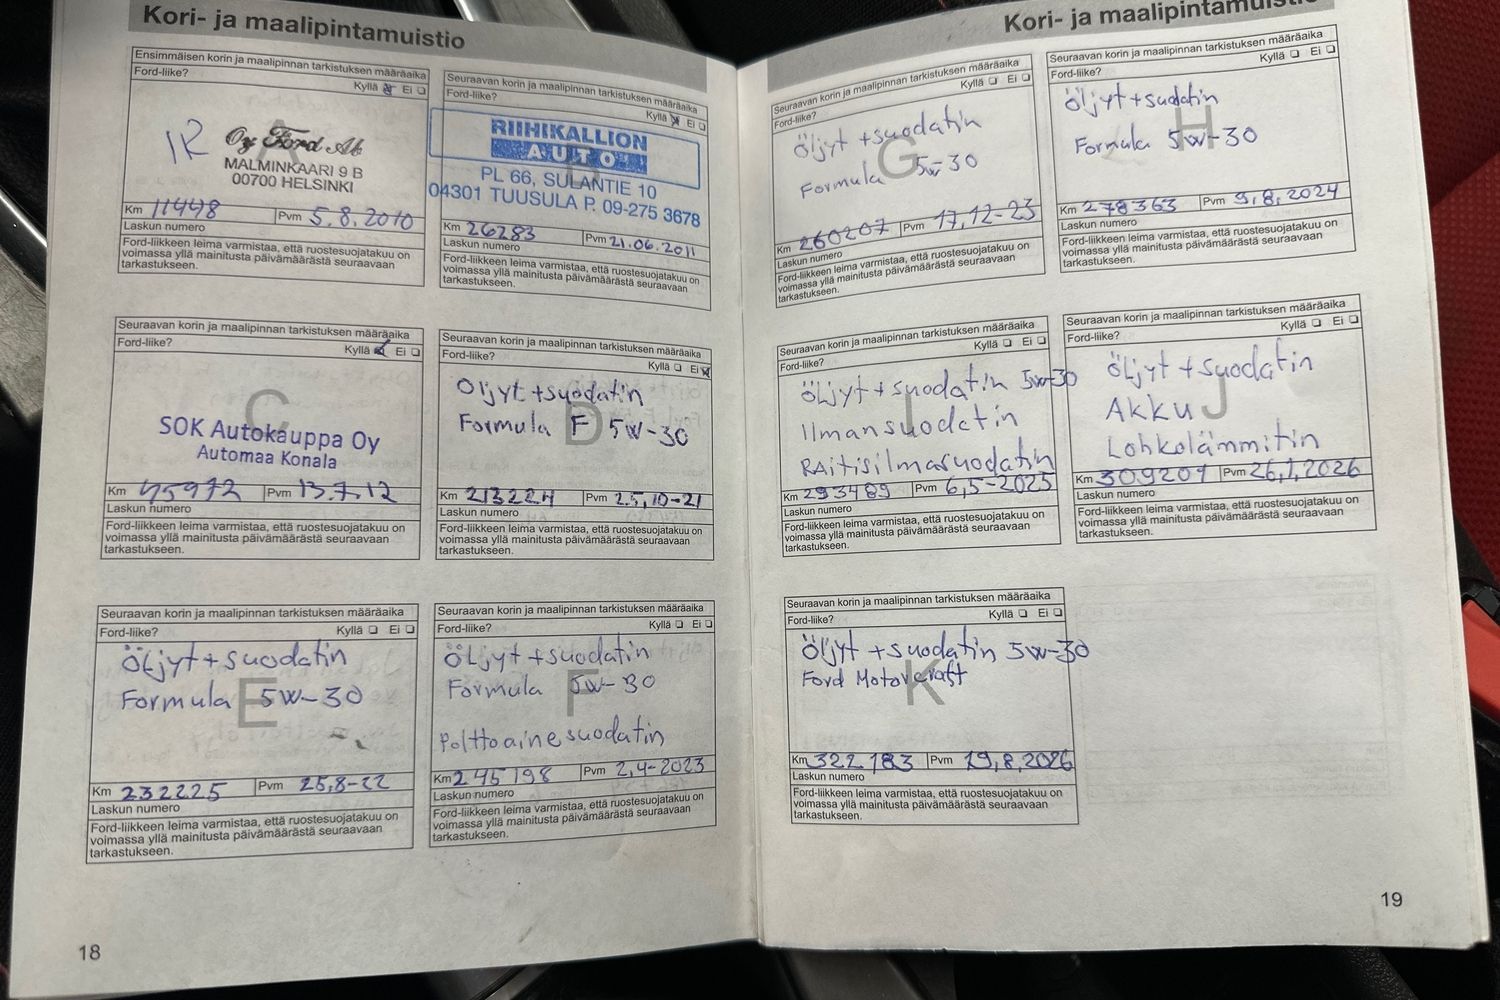 Kori- ja maalipintamuistio
Ensimmäisen korin ja maalipinnan tarkistuksen määräaika
Ford-liike?
Kyllä ☒ Ei ☐
A
1R
Oy Ford Ab
MALMINKAARI 9 B
00700 HELSINKI
Km 11448 Pvm 5.8.2010
Laskun numero
Ford-liikkeen leima varmistaa, että ruostesuojatakuu on
voimassa yllä mainitusta päivämäärästä seuraavaan
tarkastukseen.
Seuraavan korin ja maalipinnan tarkistuksen määräaika
Ford-liike?
Kyllä ☒ Ei ☐
B
RIIHIKALLION
AUTO
PL 66, SULANTIE 10
04301 TUUSULA P. 09-275 3678
Km 26283 Pvm 21.06.2011
Laskun numero
Ford-liikkeen leima varmistaa, että ruostesuojatakuu on
voimassa yllä mainitusta päivämäärästä seuraavaan
tarkastukseen.
Seuraavan korin ja maalipinnan tarkistuksen määräaika
Ford-liike?
Kyllä ☒ Ei ☐
C
SOK Autokauppa Oy
Automaa Konala
Km 45972 Pvm 13.7.12
Laskun numero
Ford-liikkeen leima varmistaa, että ruostesuojatakuu on
voimassa yllä mainitusta päivämäärästä seuraavaan
tarkastukseen.
Seuraavan korin ja maalipinnan tarkistuksen määräaika
Ford-liike?
Kyllä ☐ Ei ☒
D
Öljyt +suodatin
Formula F 5W-30
Km 213224 Pvm 25,10-21
Laskun numero
Ford-liikkeen leima varmistaa, että ruostesuojatakuu on
voimassa yllä mainitusta päivämäärästä seuraavaan
tarkastukseen.
Seuraavan korin ja maalipinnan tarkistuksen määräaika
Ford-liike?
Kyllä ☐ Ei ☐
E
Öljyt + suodatin
Formula 5W-30
Km 232225 Pvm 25,8-22
Laskun numero
Ford-liikkeen leima varmistaa, että ruostesuojatakuu on
voimassa yllä mainitusta päivämäärästä seuraavaan
tarkastukseen.
Seuraavan korin ja maalipinnan tarkistuksen määräaika
Ford-liike?
Kyllä ☐ Ei ☐
F
Öljyt +suodatin
Formula 5W-30
Polttoainesuodatin
Km 245198 Pvm 2,4-2023
Laskun numero
Ford-liikkeen leima varmistaa, että ruostesuojatakuu on
voimassa yllä mainitusta päivämäärästä seuraavaan
tarkastukseen.
18
Kori- ja maalipintamuistio
Seuraavan korin ja maalipinnan tarkistuksen määräaika
Ford-liike?
Kyllä ☐ Ei ☐
G
öljyt +suodatin
Formula 5W-30
Km 260207 Pvm 17,12-23
Laskun numero
Ford-liikkeen leima varmistaa, että ruostesuojatakuu on
voimassa yllä mainitusta päivämäärästä seuraavaan
tarkastukseen.
Seuraavan korin ja maalipinnan tarkistuksen määräaika
Ford-liike?
Kyllä ☐ Ei ☐
H
öljyt +suodatin
Formula 5W-30
Km 278363 Pvm 9,8,2024
Laskun numero
Ford-liikkeen leima varmistaa, että ruostesuojatakuu on
voimassa yllä mainitusta päivämäärästä seuraavaan
tarkastukseen.
Seuraavan korin ja maalipinnan tarkistuksen määräaika
Ford-liike?
Kyllä ☐ Ei ☐
I
öljyt + suodatin 5W-30
Ilmansuodatin
RAitisilmasuodatin
Km 293489 Pvm 6,5-2025
Laskun numero
Ford-liikkeen leima varmistaa, että ruostesuojatakuu on
voimassa yllä mainitusta päivämäärästä seuraavaan
tarkastukseen.
Seuraavan korin ja maalipinnan tarkistuksen määräaika
Ford-liike?
Kyllä ☐ Ei ☐
J
öljyt +suodatin
AKKU
Lohkolämmitin
Km 309201 Pvm 26,1,2026
Laskun numero
Ford-liikkeen leima varmistaa, että ruostesuojatakuu on
voimassa yllä mainitusta päivämäärästä seuraavaan
tarkastukseen.
Seuraavan korin ja maalipinnan tarkistuksen määräaika
Ford-liike?
Kyllä ☐ Ei ☐
K
öljyt +suodatin 5W-30
Ford Motorcraft
Km 322183 Pvm 19,8,2026
Laskun numero
Ford-liikkeen leima varmistaa, että ruostesuojatakuu on
voimassa yllä mainitusta päivämäärästä seuraavaan
tarkastukseen.
19